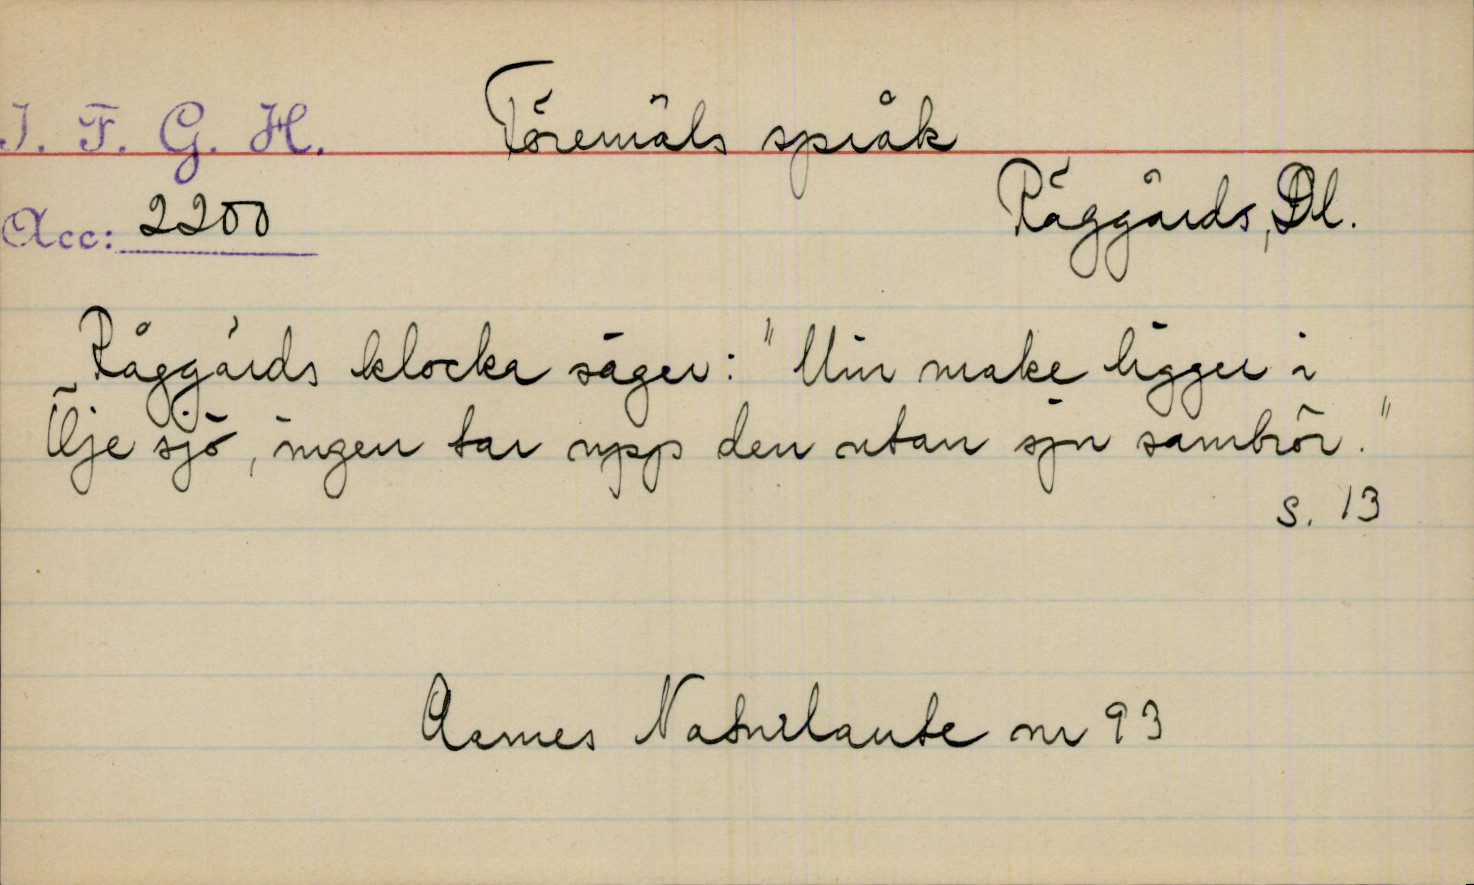 I. F. G. H.
Föremåls språk
Acc: 2200
Råggärds, Dl.
Råggärds klocka säger: "Min make ligger i
Ölje sjö, ingen tar upp den utan sju sambrör."
s. 13
Aarnes Naturlaute nr 93